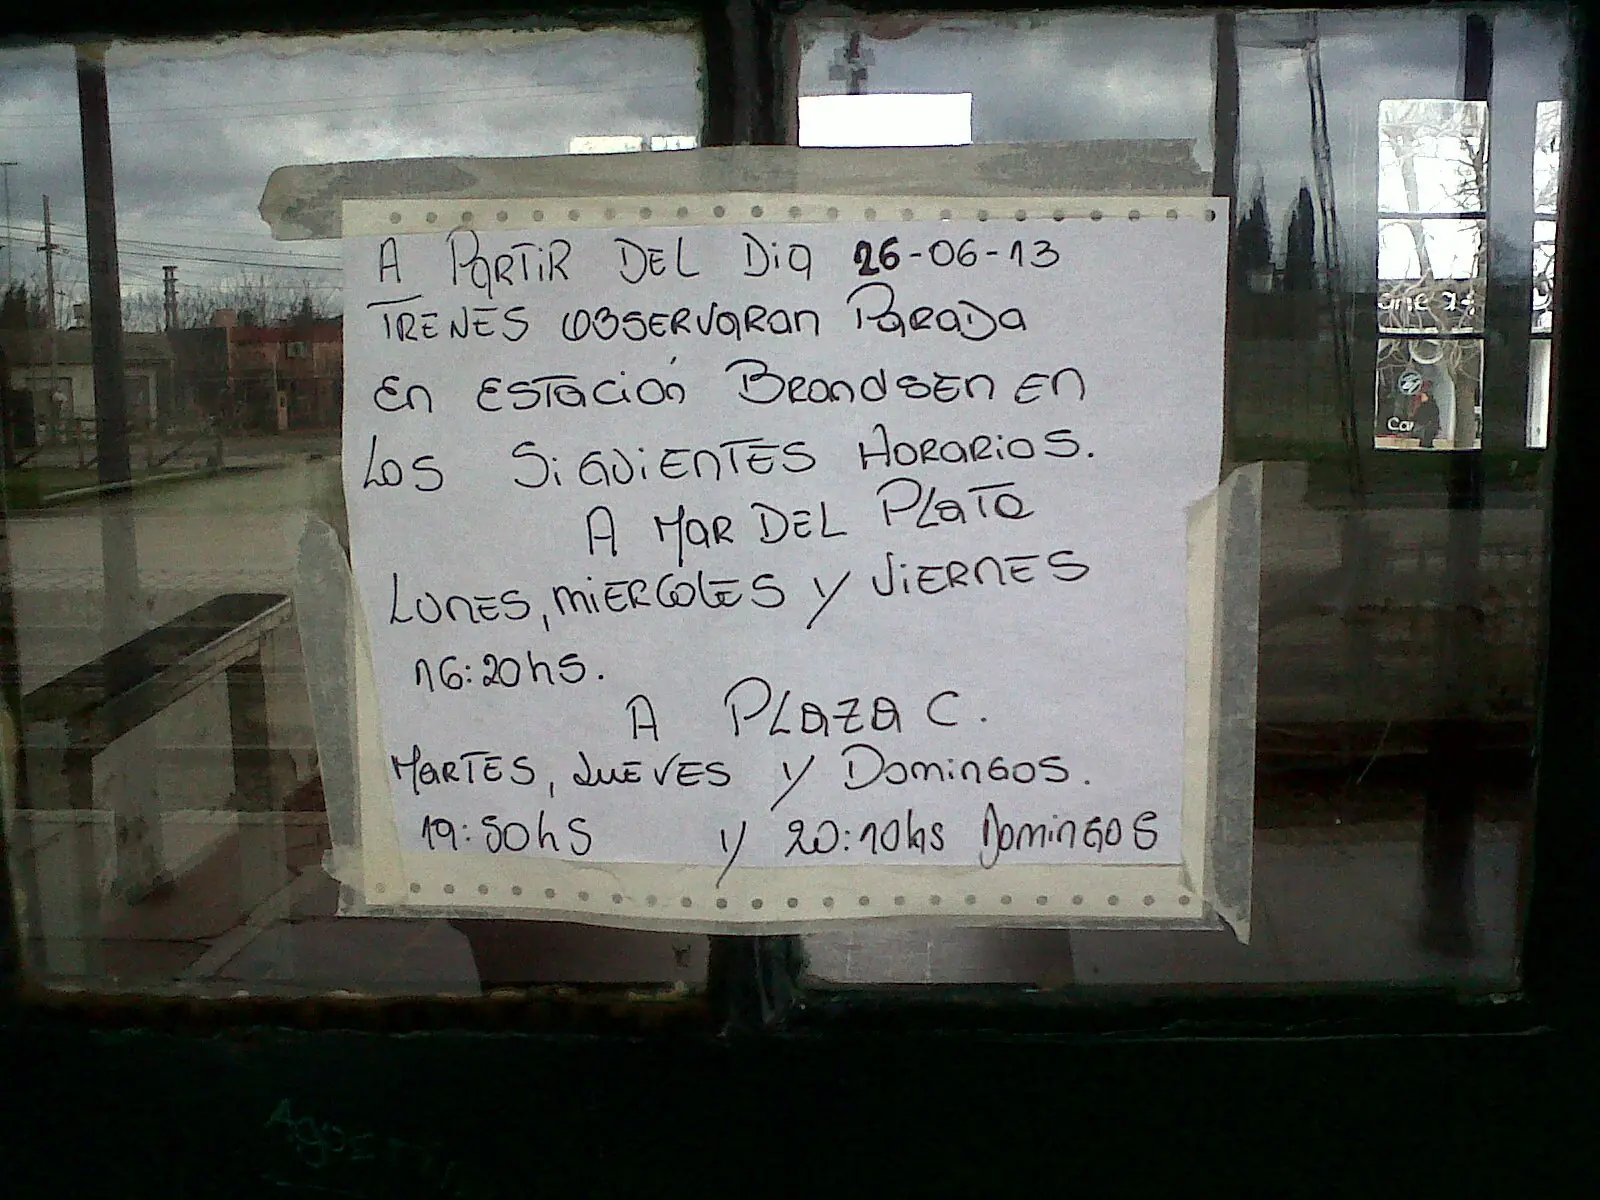 A PARTIR DEL DIA 26-06-13
TRENES OBSERVARAN PARADA
EN ESTACIÓN BRANDSEN EN
LOS SIGUIENTES HORARIOS.
A MAR DEL PLATA
LUNES, MIERCOLES Y VIERNES
16:20hS.
A PLAZA C.
MARTES, JUEVES Y DOMINGOS.
19:50hS Y 20:10hs DOMINGOS